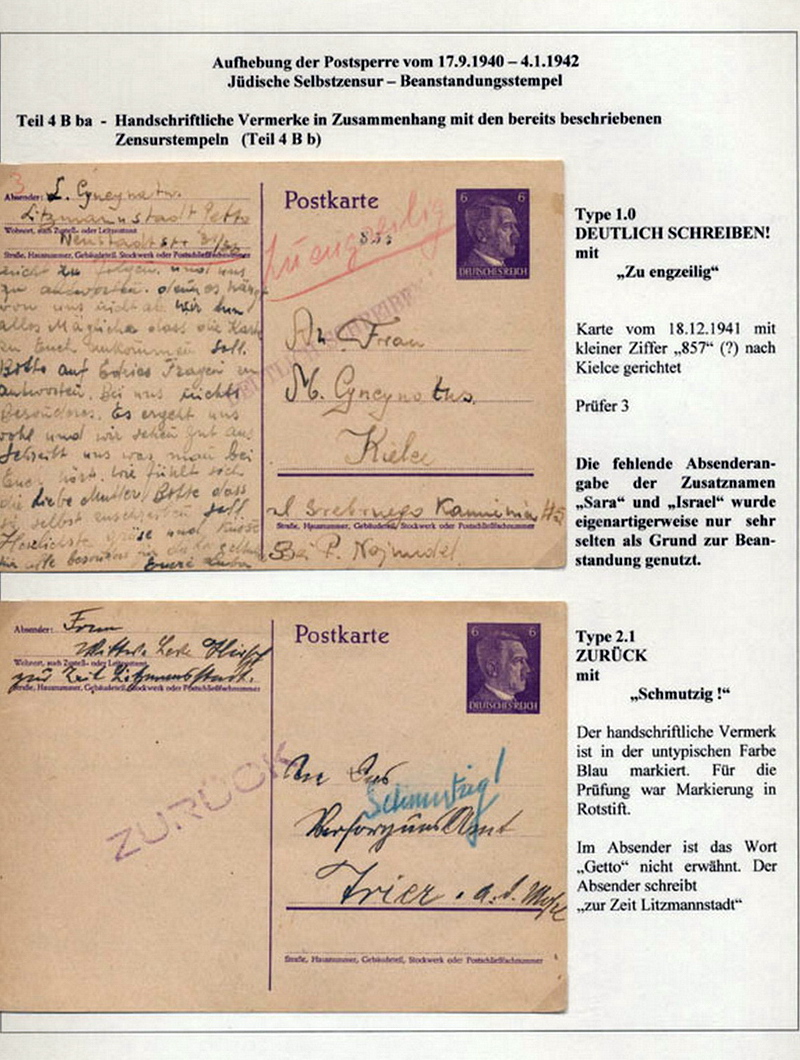 Aufhebung der Postsperre vom 17.9.1940 – 4.1.1942
Jüdische Selbstzensur – Beanstandungsstempel
Teil 4 B ba - Handschriftliche Vermerke in Zusammenhang mit den bereits beschriebenen
Zensurstempeln (Teil 4 B b)
3
Absender: L. Cyncynatus.
Litzmannstadt Getto
Wohnort, auch Zustell- oder Leitpostamt
Neustadtstr.
Straße, Hausnummer, Gebäudeteil, Stockwerk oder Postschließfachnummer
nicht zu folgen. und uns
zu antworten. denn es hängt
von uns nicht ab. Wir tun
alles Mögliche dass die Karte
zu Euch ankommen soll.
Bitte auf Edzies Fragen zu
antworten. Bei uns nichts
Besonderes. Es ergeht uns
wohl und wir sehen gut aus
Schreibt uns was man bei
Euch hört. Wie fühlt sich
die liebe Mutter. Bitte dass
sie selbst zuschreiben soll
Herzlichste Grüse und Küsse
Eure Luba
Postkarte
6 6
DEUTSCHES REICH
zu engzeilig
DEUTLICH SCHREIBEN!
An Frau
M. Cyncynatus.
Kielce
Straße, Hausnummer, Gebäudeteil, Stockwerk oder Postschließfachnummer
Bei P. Najmudel
Type 1.0
DEUTLICH SCHREIBEN!
mit
„Zu engzeilig“
Karte vom 18.12.1941 mit
kleiner Ziffer „857“ (?) nach
Kielce gerichtet
Prüfer 3
Die fehlende Absenderan-
gabe der Zusatznamen
„Sara“ und „Israel“ wurde
eigenartigerweise nur sehr
selten als Grund zur Bean-
standung genutzt.
Absender: Frau
Wittwe
Wohnort, auch Zustell- oder Leitpostamt
zur Zeit Litzmannstadt.
Straße, Hausnummer, Gebäudeteil, Stockwerk oder Postschließfachnummer
ZURÜCK
Postkarte
6 6
DEUTSCHES REICH
An Das
Schmutzig!
Versorgungs Amt
Trier. a. d. Mosel
Straße, Hausnummer, Gebäudeteil, Stockwerk oder Postschließfachnummer
Type 2.1
ZURÜCK
mit
„Schmutzig !“
Der handschriftliche Vermerk
ist in der untypischen Farbe
Blau markiert. Für die
Prüfung war Markierung in
Rotstift.
Im Absender ist das Wort
„Getto“ nicht erwähnt. Der
Absender schreibt
„zur Zeit Litzmannstadt“